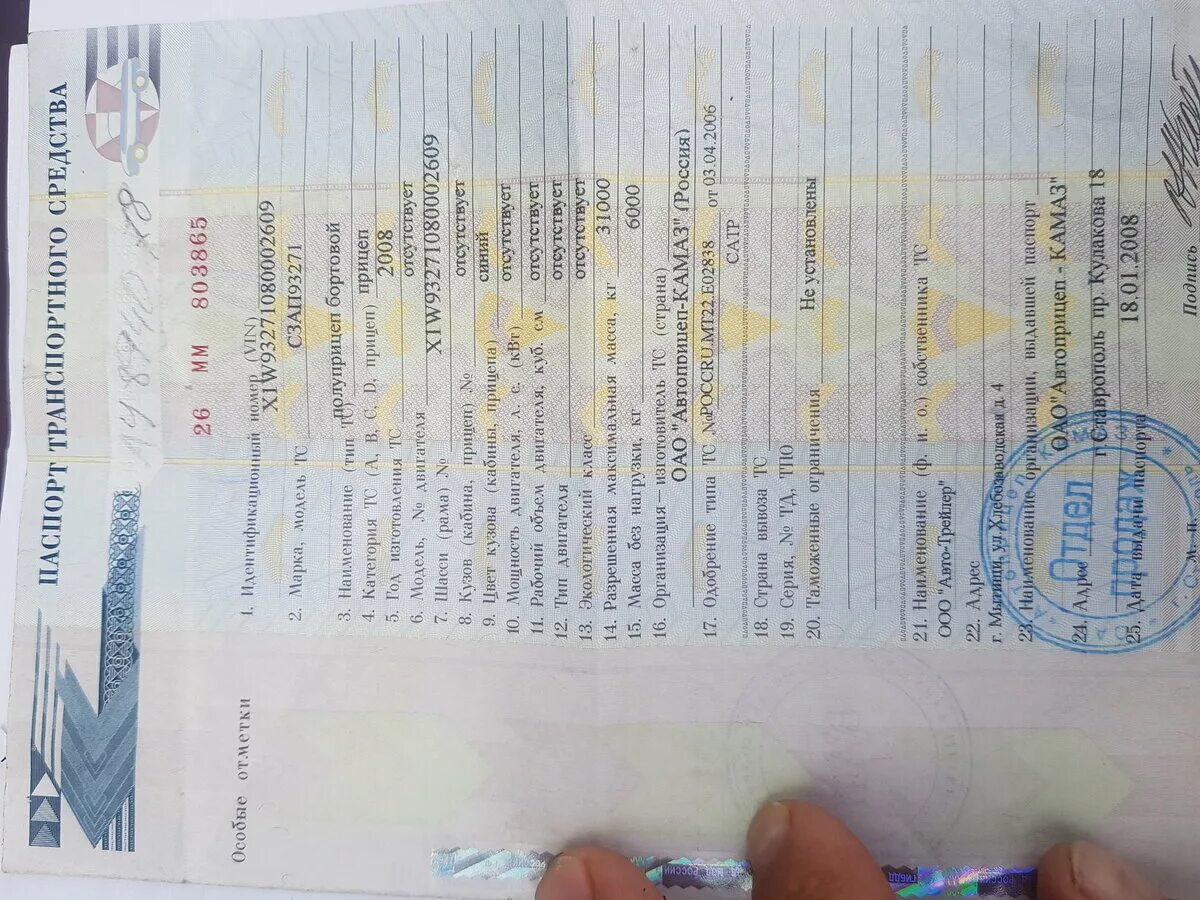 ПАСПОРТ ТРАНСПОРТНОГО СРЕДСТВА
26 ММ 803865
1. Идентификационный номер (VIN)
X1W93271080002609
2. Марка, модель ТС СЗАП93271
3. Наименование (тип ТС) полуприцеп бортовой
4. Категория ТС (А, В, С, D, прицеп) прицеп
5. Год изготовления ТС 2008
6. Модель, № двигателя отсутствует
7. Шасси (рама) № X1W93271080002609
8. Кузов (кабина, прицеп) № отсутствует
9. Цвет кузова (кабины, прицепа) синий
10. Мощность двигателя, л. с. (кВт) отсутствует
11. Рабочий объем двигателя, куб. см отсутствует
12. Тип двигателя отсутствует
13. Экологический класс отсутствует
14. Разрешенная максимальная масса, кг 31000
15. Масса без нагрузки, кг 6000
16. Организация — изготовитель ТС (страна)
ОАО "Автоприцеп-КАМАЗ" (Россия)
17. Одобрение типа ТС №РОССRU.МТ22.Е02838 от 03.04.2006
САТР
18. Страна вывоза ТС
19. Серия, № ТД, ТПО
20. Таможенные ограничения Не установлены
21. Наименование (ф. и. о.) собственника ТС
ООО "Авто-Трейлер"
22. Адрес
г. Мытищи, ул.Хлебозаводская д. 4
23. Наименование организации, выдавшей паспорт
ОАО"Автоприцеп - КАМАЗ"
24. Адрес г Ставрополь пр. Кулакова 18
25. Дата выдачи паспорта 18.01.2008
Подпись
Отдел
продаж
Особые отметки